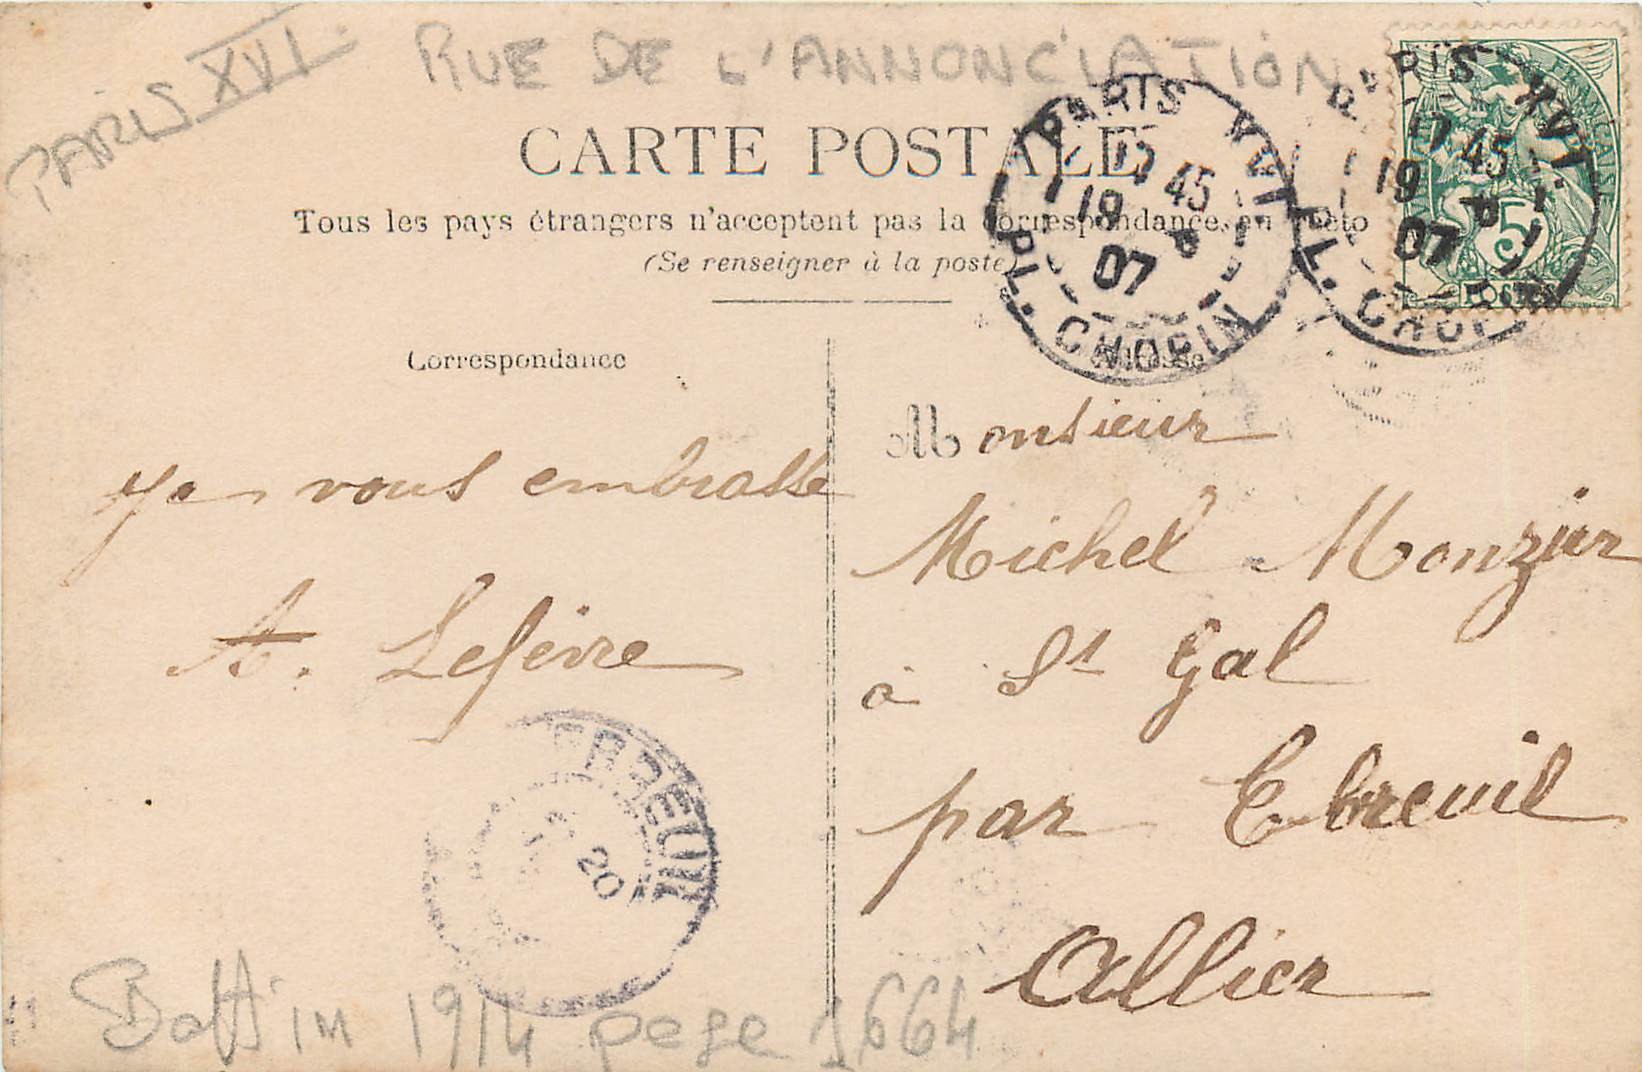 PARIS XVI RUE DE L'ANNONCIATION
CARTE POSTALE
Tous les pays étrangers n'acceptent pas la correspondance au recto
(Se renseigner à la poste)
PARIS XVI
17 45
19 - 6
07
PL. CHOPIN
PARIS XVI
17 45
19 - 6
07
PL. CHOPIN
FRANÇAISE
5
POSTES
Correspondance
Adresse
Je vous embrasse
A. Lefèvre
EBREUIL
20
Monsieur
Michel Monzier
à St Gal
par Ebreuil
Allier
Bottin 1914 page 1664